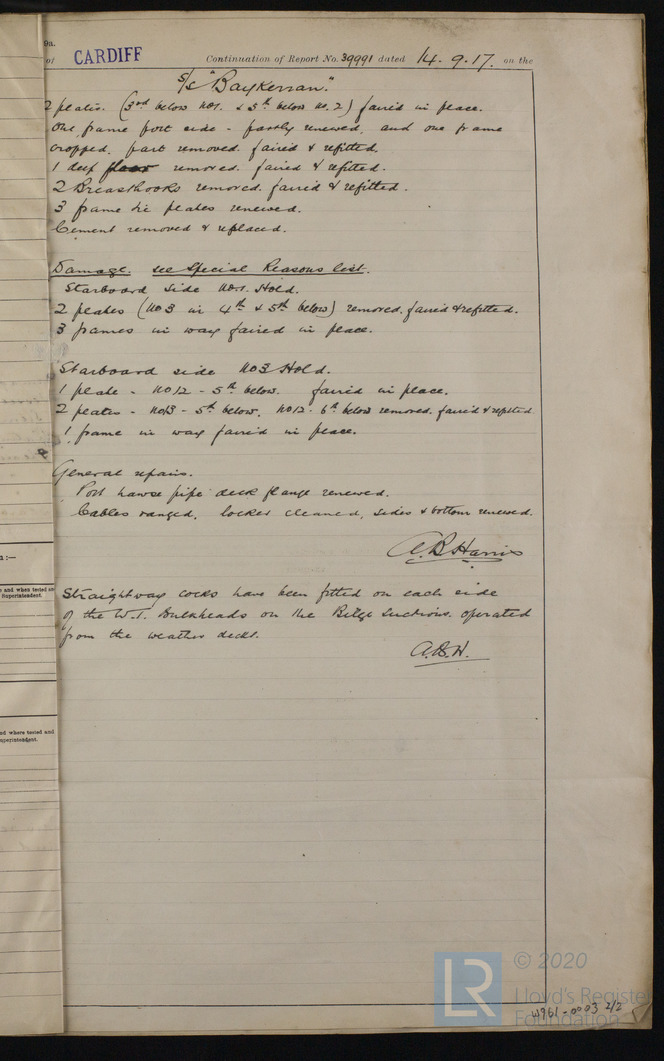 9a.
of CARDIFF Continuation of Report No. 39991 dated 14.9.17. on the
S/S "Baykerran."
2 plates. (3rd below No1. & 5th below No. 2) faired in place.
One frame port side - partly renewed, and one frame
cropped, part removed faired & refitted.
1 deep floor removed. faired & refitted.
2 Breasthooks removed. faired & refitted.
3 frame tie plates renewed.
Cement removed & replaced.
Damage. see Special Reasons list.
Starboard side No1. Hold.
2 plates (No3 in 4th & 5th below) removed. faired & refitted.
3 frames in way faired in place.
Starboard side No3 Hold.
1 plate - No12 - 5th below. faired in place.
2 plates - No13 - 5th below, No12 - 6th below removed. faired & refitted
1 frame in way faired in place.
General repairs.
Port hawse pipe deck flange renewed.
Cables ranged, locker cleaned, sides & bottom renewed.
A.B Harris
a :—
e and when tested an
Superintendent.
Straightway cocks have been fitted on each side
of the W.T. Bulkheads on the Bilge Suctions. operated
from the weather decks.
A.B.H.
nd where tested and
uperintendent.
LR © 2020
Lloyd's Register
Foundation
W961-0003 2/2